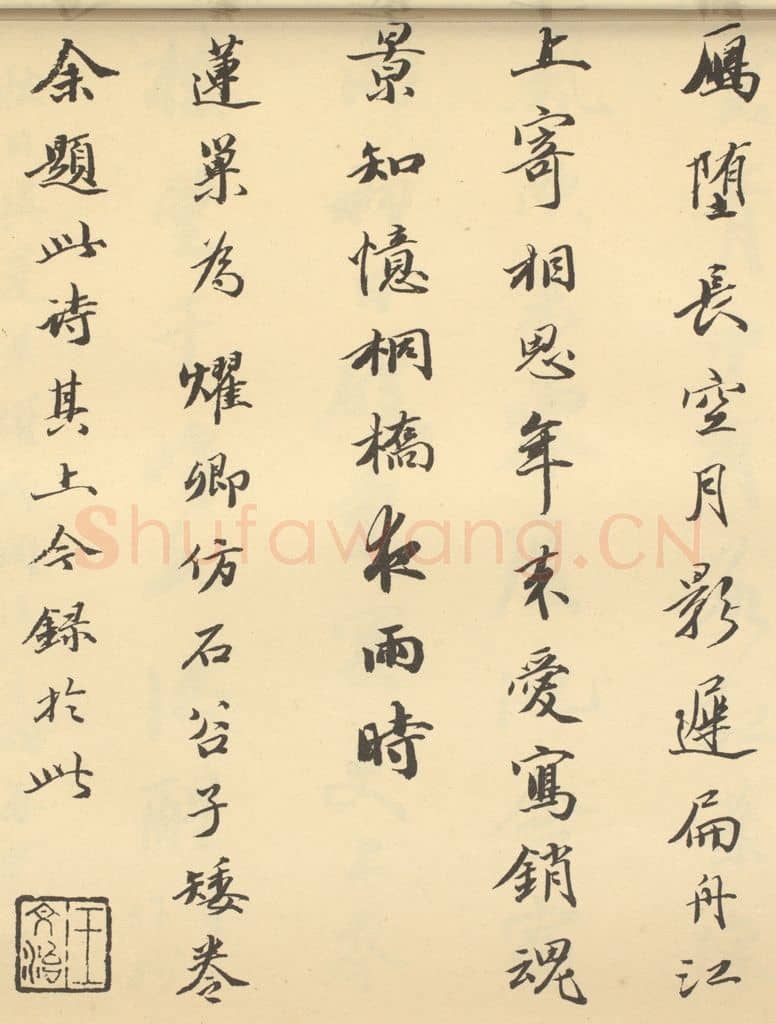 鴈堕長空月影遲扁舟江
上寄相思年來愛寫銷魂
景知憶桐橋夜雨時
蓮巢為燿卿仿石谷子矮卷
余題此诗其上今録於此
王文治
Shufawang.CN